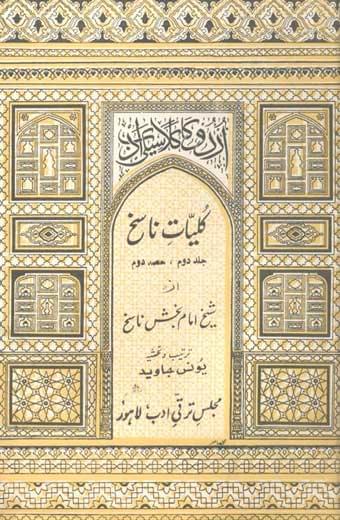 اردو کا کلاسیکی ادب
کلیّاتِ ناسخ
جلد دوم ، حصہ دوم
از
شیخ امام بخش ناسخ
ترتیب و تحشیہ
یونس جاوید
مجلس ترقیٔ ادب لاہور